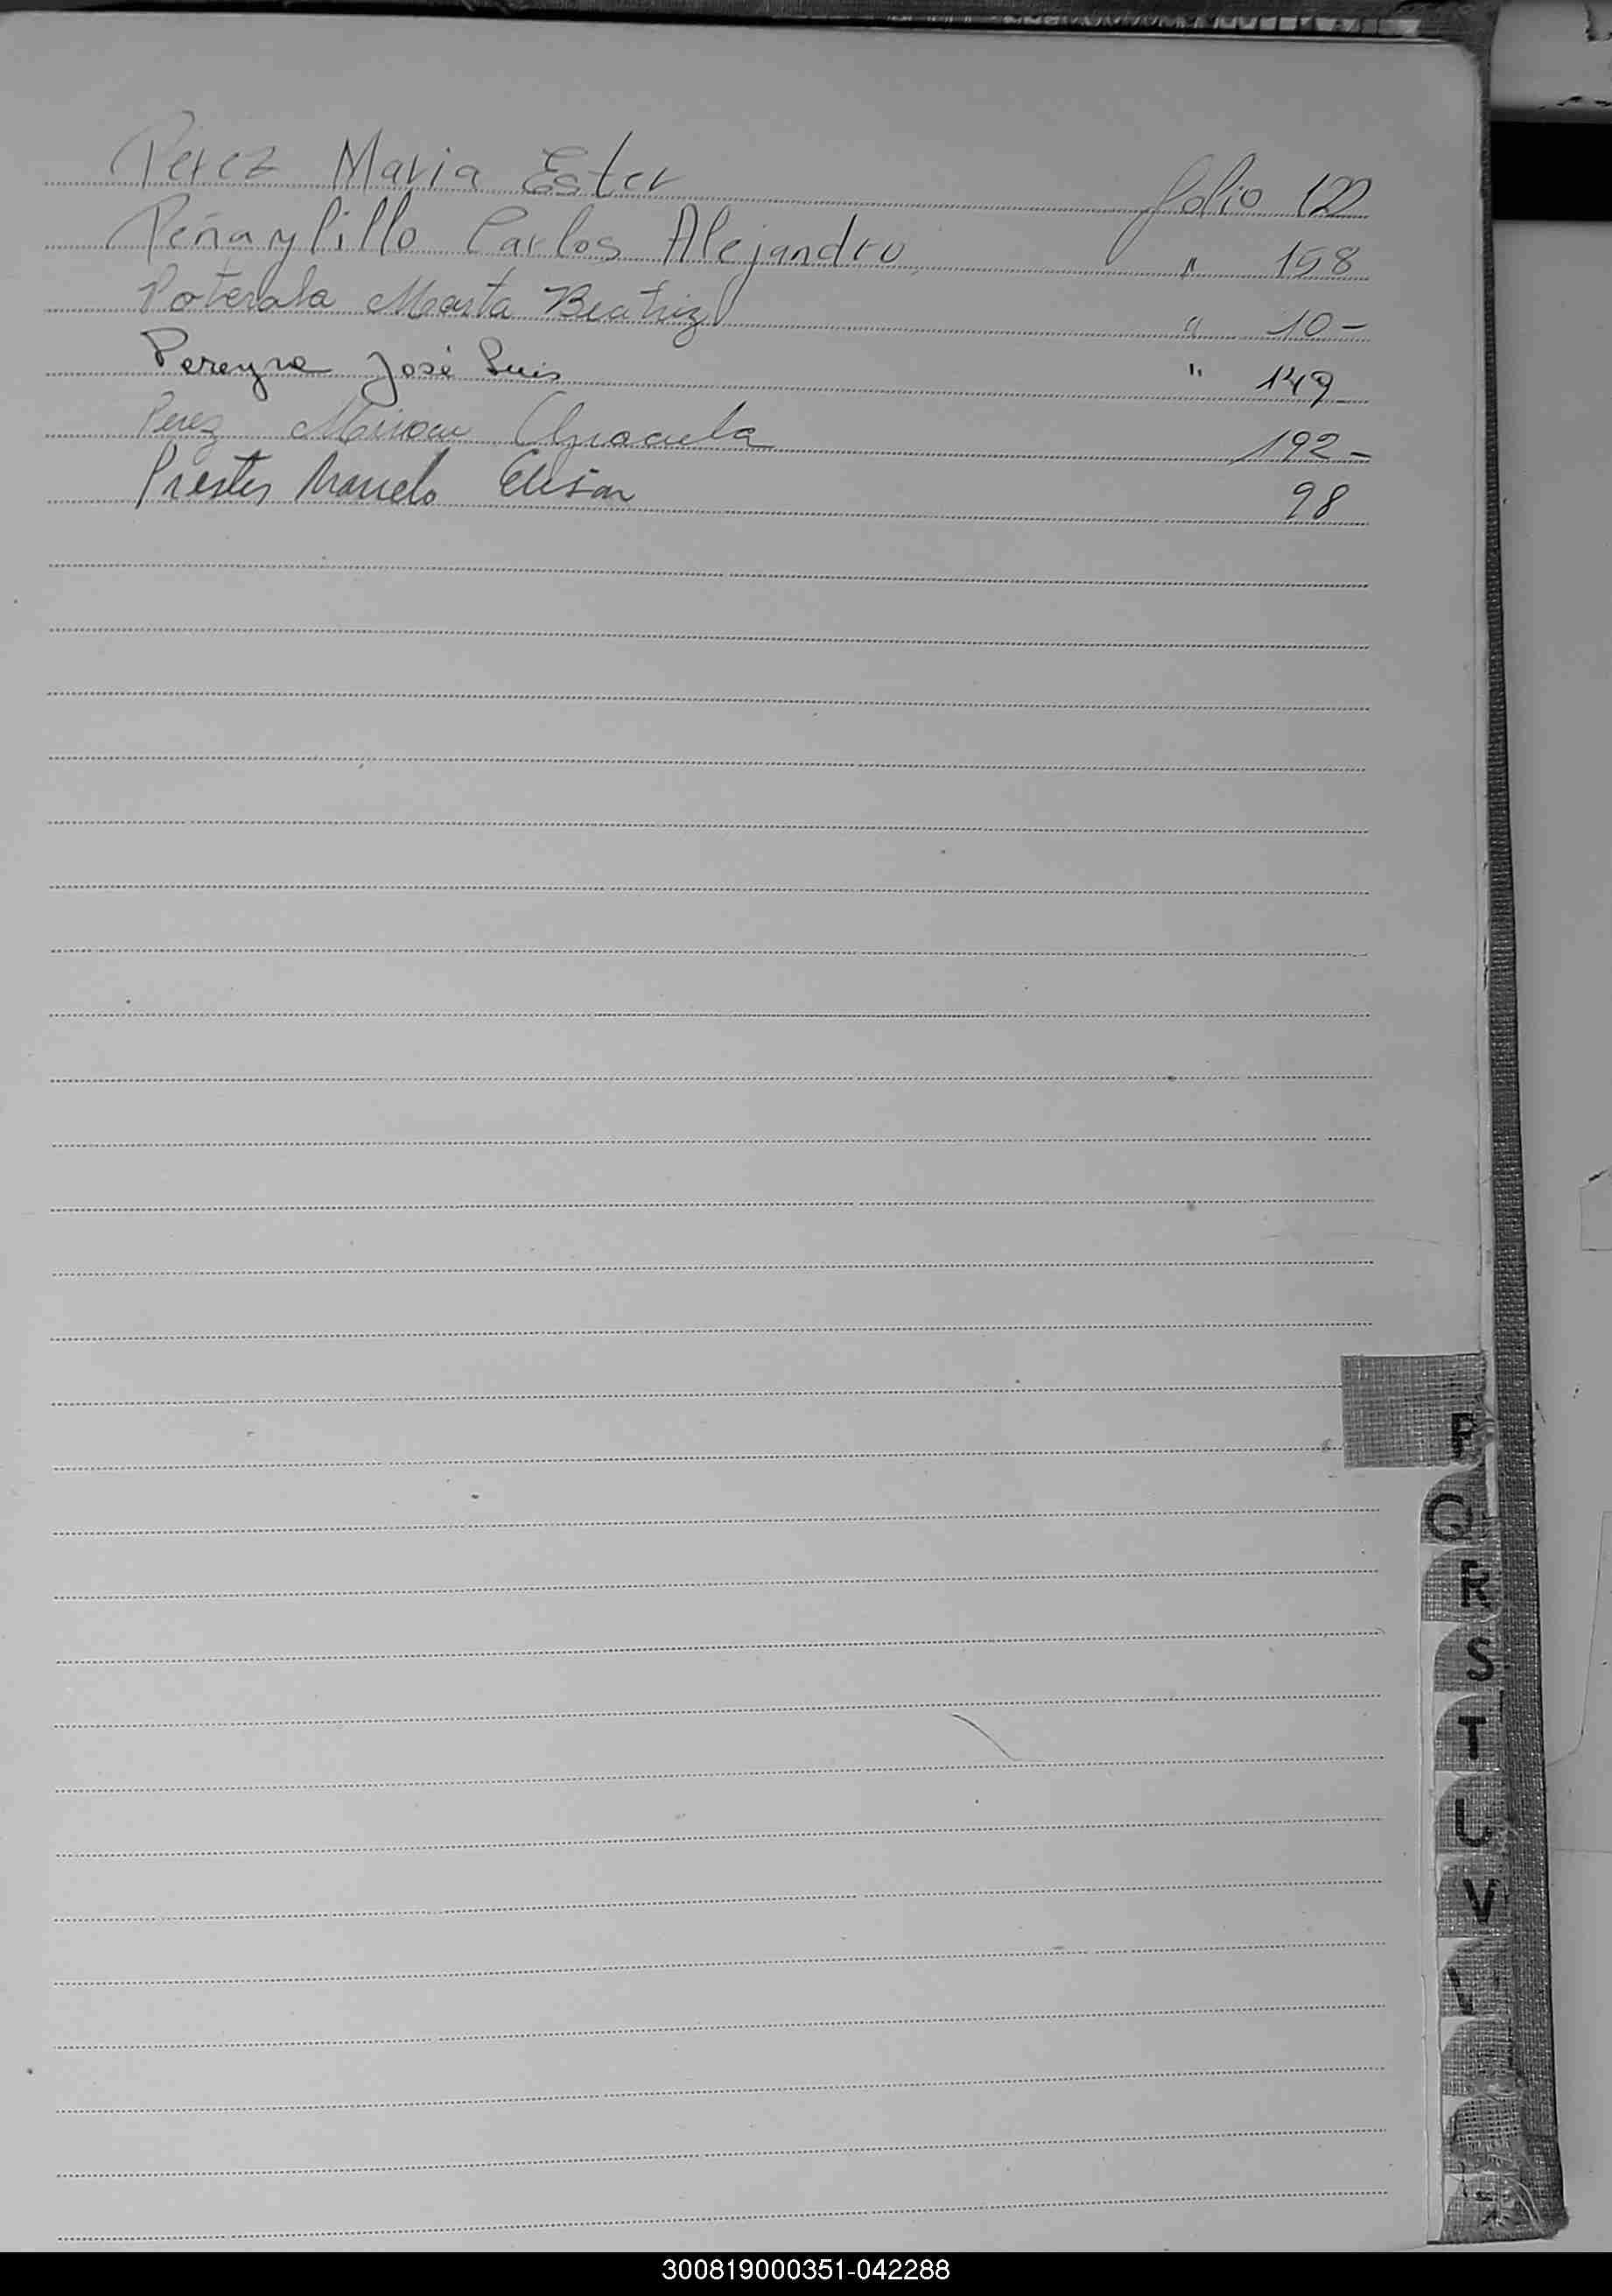 Perez Maria Ester folio 122
Peñaylillo Carlos Alejandro " 158
Marta Beatriz " 10-
Pereyra José Luis " 149
Perez 192-
Prestes Marcelo 98
P
Q
R
S
T
U
V
300819000351-042288